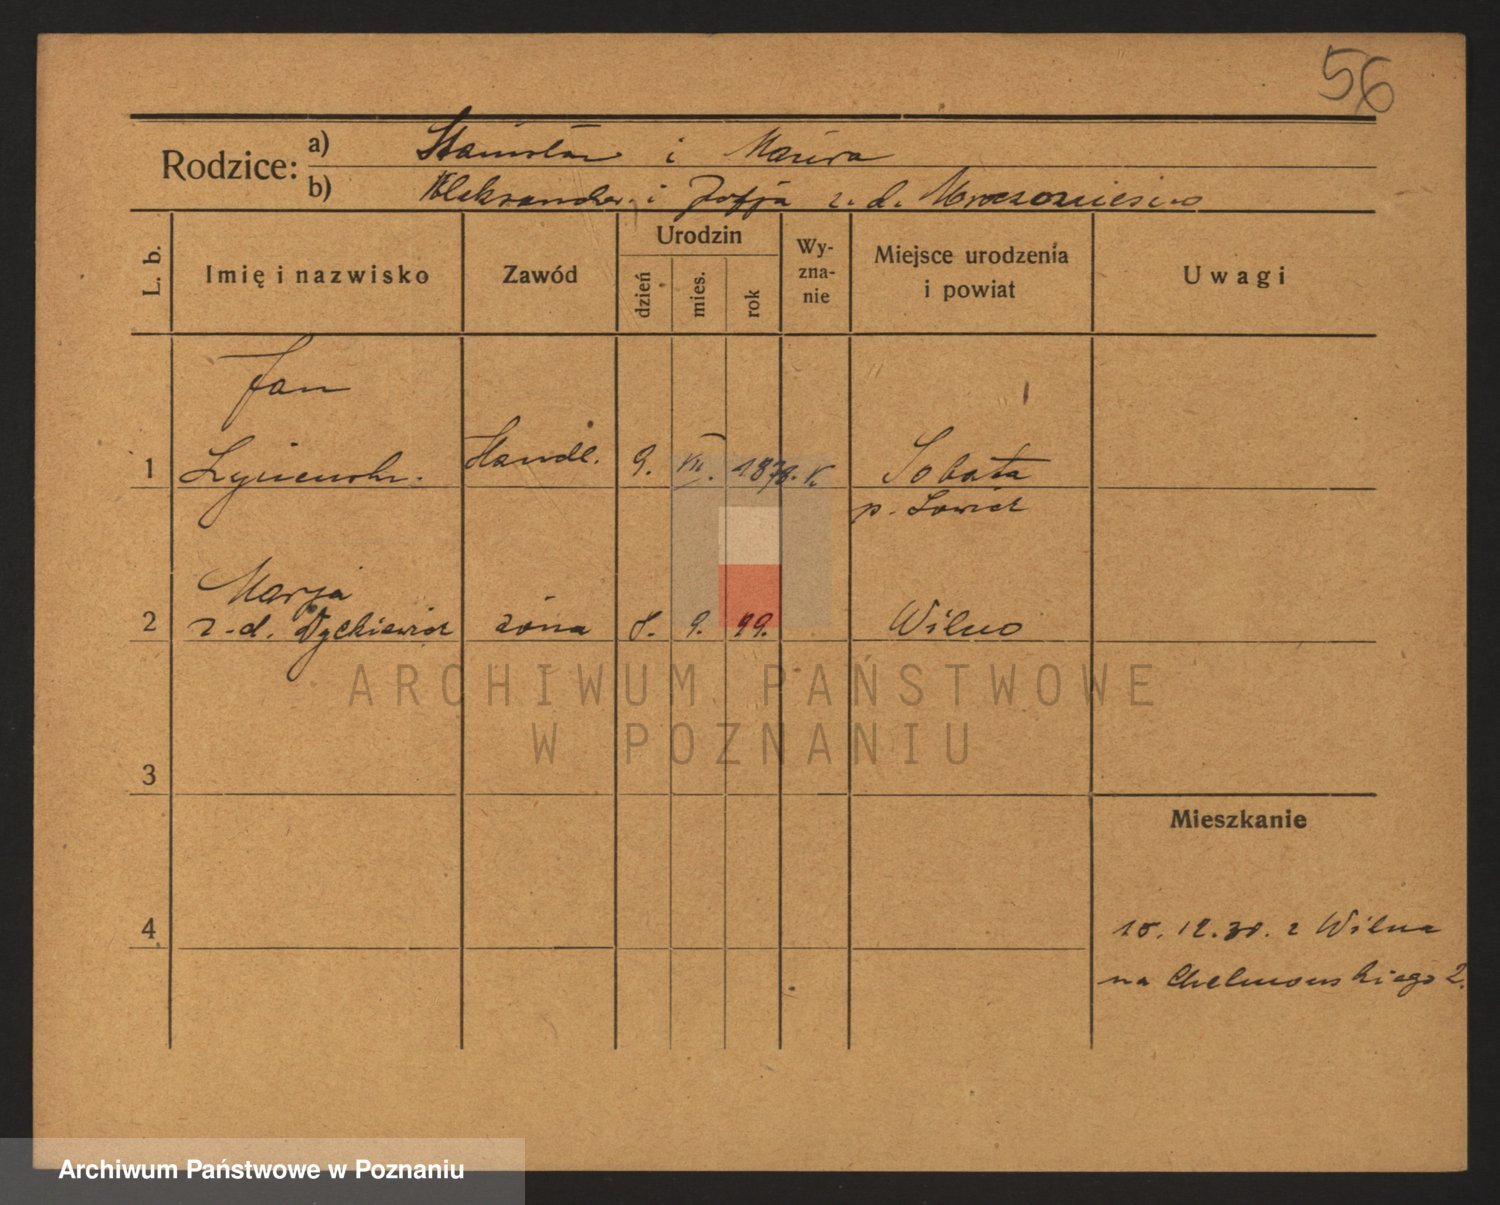 56
Rodzice: a) Stanisław i Maria
b) Aleksander i Zofja z. d.
L. b. Imię i nazwisko Zawód Urodzin dzień mies. rok Wy-zna-nie Miejsce urodzenia i powiat Uwagi
Jan
1 Handl. 9. VII. 1878. K. Sobota
p. Łowicz
Marja
2 z-d. żona 8. 9. 99. Wilno
ARCHIWUM PAŃSTWOWE
W POZNANIU
3
Mieszkanie
4 15. 12. 30. z Wilna
na Chełmońskiego 2.
Archiwum Państwowe w Poznaniu